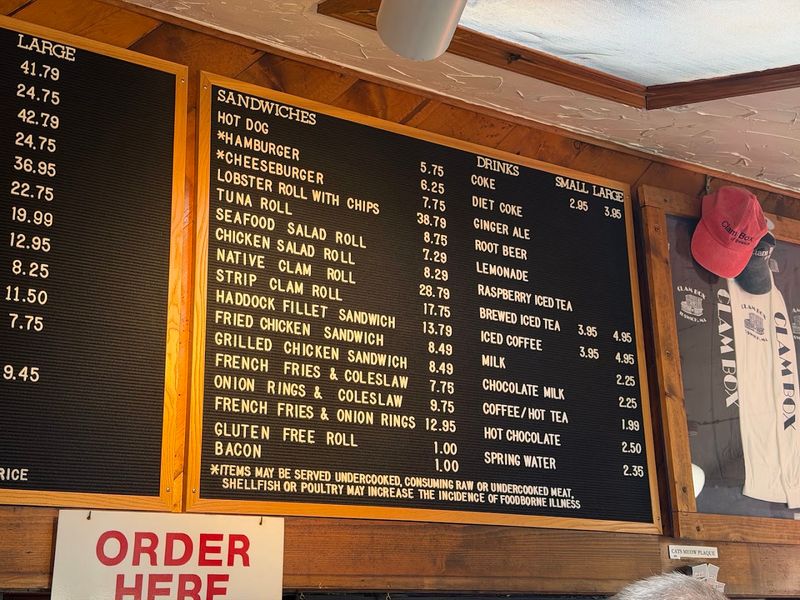 LARGE
41.79
24.75
42.79
24.75
36.95
22.75
19.99
12.95
8.25
11.50
7.75
9.45
RICE
SANDWICHES
HOT DOG 5.75
*HAMBURGER 6.25
*CHEESEBURGER 7.75
LOBSTER ROLL WITH CHIPS 38.79
TUNA ROLL 8.75
SEAFOOD SALAD ROLL 7.29
CHICKEN SALAD ROLL 8.29
NATIVE CLAM ROLL 28.79
STRIP CLAM ROLL 17.75
HADDOCK FILLET SANDWICH 13.79
FRIED CHICKEN SANDWICH 8.49
GRILLED CHICKEN SANDWICH 8.49
FRENCH FRIES & COLESLAW 7.75
ONION RINGS & COLESLAW 9.75
FRENCH FRIES & ONION RINGS 12.95
GLUTEN FREE ROLL 1.00
BACON 1.00
DRINKS SMALL LARGE
COKE 2.95 3.95
DIET COKE
GINGER ALE
ROOT BEER
LEMONADE
RASPBERRY ICED TEA
BREWED ICED TEA 3.95 4.95
ICED COFFEE 3.95 4.95
MILK 2.25
CHOCOLATE MILK 2.25
COFFEE/HOT TEA 1.99
HOT CHOCOLATE 2.50
SPRING WATER 2.35
*ITEMS MAY BE SERVED UNDERCOOKED, CONSUMING RAW OR UNDERCOOKED MEAT,
SHELLFISH OR POULTRY MAY INCREASE THE INCIDENCE OF FOODBORNE ILLNESS
ORDER
HERE
Clam Box
CLAM BOX
CLAM BOX
CLAM BOX
CLAM BOX
CATS MEOW PLAQUE